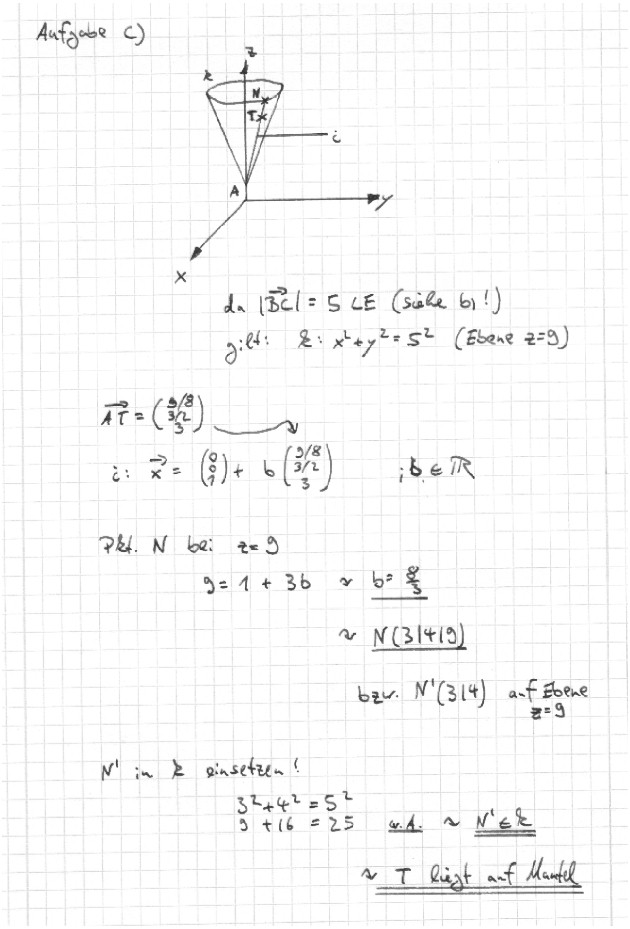 Aufgabe c)
z
k
N
T
i
A
y
x
da |BC| = 5 LE (siehe b)!)
gilt: k: x² + y² = 5² (Ebene z=9)
AT = (9/8 3/2 3)
i: x = (0 0 1) + b (9/8 3/2 3) ; b ∈ ℝ
Pkt. N bei z=9
9 = 1 + 3b ~ b = 8/3
~ N(3|4|9)
bzw. N'(3|4) auf Ebene
z=9
N' in k einsetzen!
3² + 4² = 5²
9 + 16 = 25 w.A. ~ N' ∈ k
~ T liegt auf Mantel